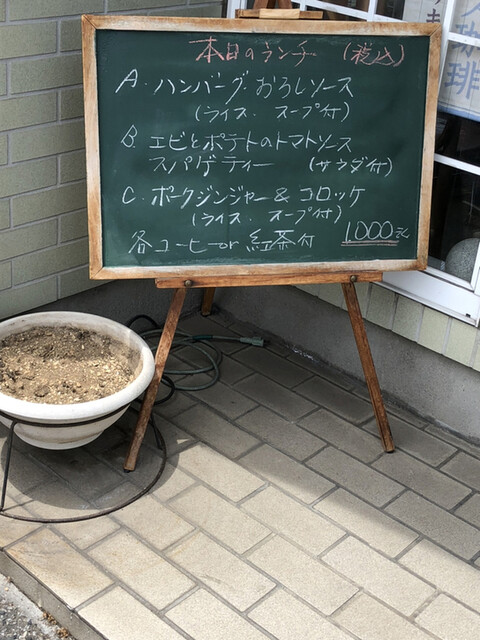 本日のランチ (税込)
A. ハンバーグ おろしソース
(ライス. スープ付)
B. エビとポテトのトマトソース
スパゲティー (サラダ付)
C. ポークジンジャー & コロッケ
(ライス. スープ付)
各コーヒー or 紅茶付 1000円
珈琲